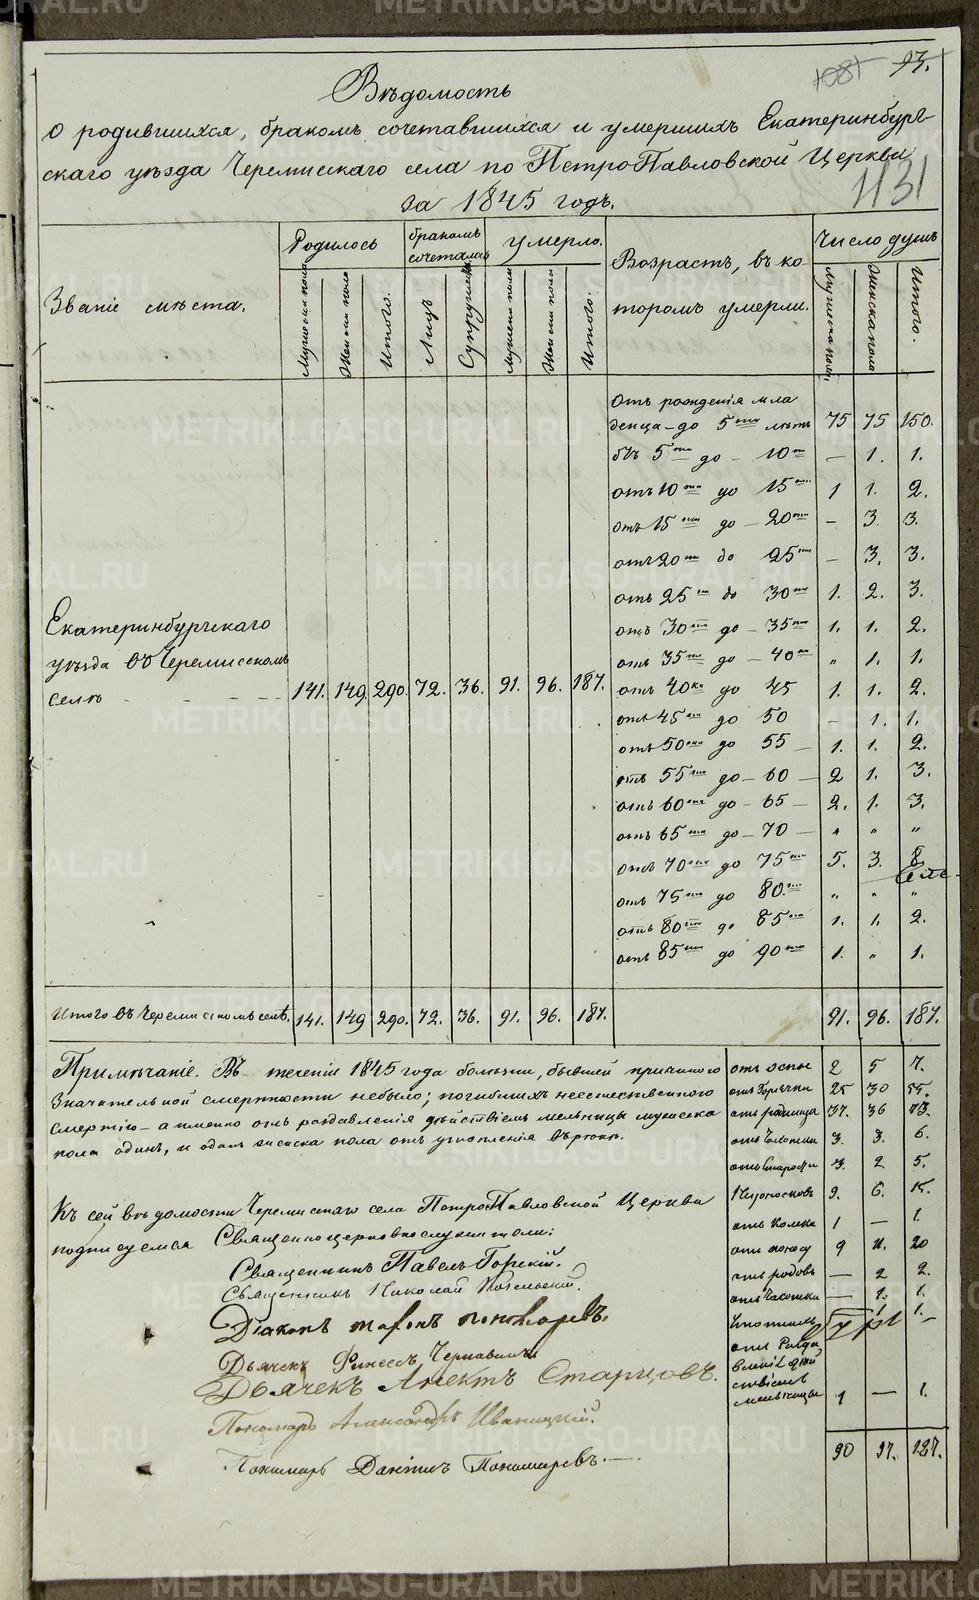 1081 93.
Вѣдомость
о родившихся, бракомъ сочетавшихся и умершихъ Екатеринбург-
скаго уѣзда Черемисскаго села по ПетроПавловской Церкви
за 1845 годъ.
1131
Званіе мѣста.
Родилось
Мужеска пола
Женска пола
Итого.
бракомъ сочетались
Лицъ
Супружествъ
умерло.
Мужеска пола
Женска пола
Итого.
Возрастъ, въ ко-
торомъ умерли.
Число душъ
Мужеска пола
Женска пола
Итого.
отъ рожденія мла
денца до 5ти лѣтъ 75 75 150.
отъ 5ти до 10ти — 1. 1.
отъ 10ти до 15ти 1 1. 2.
отъ 15ти до 20ти — 3. 3.
отъ 20ти до 25ти — 3. 3.
отъ 25ти до 30ти 1. 2. 3.
отъ 30ти до 35ти 1. 1. 2.
отъ 35ти до 40ти " 1. 1.
Екатеринбургскаго
уѣзда въ Черемисскомъ
селѣ 141. 149. 290. 72. 36. 91. 96. 187.
отъ 40ка до 45 1. 1. 2.
отъ 45ти до 50 — 1. 1.
отъ 50ти до 55 — 1. 1. 2.
отъ 55ти до 60 — 2 1. 3.
отъ 60ти до 65 — 2. 1. 3.
отъ 65ти до 70 — " " "
отъ 70ти до 75ти 5. 3. 8
отъ 75ти до 80ти " " "
отъ 80ти до 85ти 1. 1. 2.
отъ 85ти до 90ти 1. " 1.
Итого въ Черемисскомъ селѣ. 141. 149 290. 72. 36. 91. 96. 187. 91. 96. 187.
Примѣчаніе. Въ теченіи 1845 года болѣзни, бывшей причиною
значительной смертности небыло; погибшихъ неестественною
смертію — а именно отъ раздавленія дѣйствіемъ мельницы мужеска
пола одинъ, и одна женска пола отъ утопленія
отъ оспы 2 5 7.
отъ Горячки 25 30 55.
отъ родимца 37. 36 73.
3. 3. 6.
отъ Старости 3. 2 5.
9. 6. 15.
1 — 1.
отъ поносу 9 11. 20
отъ родовъ — 2 2.
отъ Чахотки — 1. 1.
мельницы 1 — 1.
90 97. 187.
Къ сей вѣдомости Черемисскаго села ПетроПавловской Церкви
подписуемся Священноцерковнослужители:
Священникъ Павелъ Горскій.
Священникъ Николай
Діаконъ
Дьячекъ Финеесъ Чернавинъ
Дьячекъ Старцовъ.
Пономарь Александръ Иваницкій.
Пономарь Даніилъ Пономаревъ.
METRIKI.GASO-URAL.RU